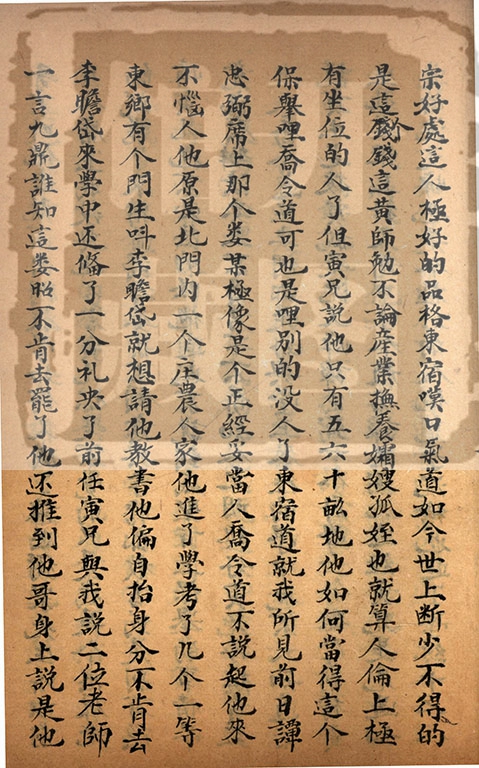 宗好處這人極好的品格東宿嘆口氣道如今世上断少不得的
是這個錢錢這黄師勉不論產業撫養孀嫂孤姪也就算人倫上極
有坐位的人了但寅兄說他只有五六十畝地他如何當得這个
保舉哩喬令道可也是哩別的没人了東宿道就我所見前日譚
忠弼席上那个娄某極像是个正經妥當人喬令道不説起他來
不惱人他原是北門内一个庄農人家他進了學考了几个一等
東鄉有个門生呌李瞻岱就想請他教書他偏自抬身分不肯去
李瞻岱來學中还俻了一分礼央了前任寅兄與我説二位老師
一言九鼎誰知這娄昭不肯去罷了他还推到他哥身上説是他